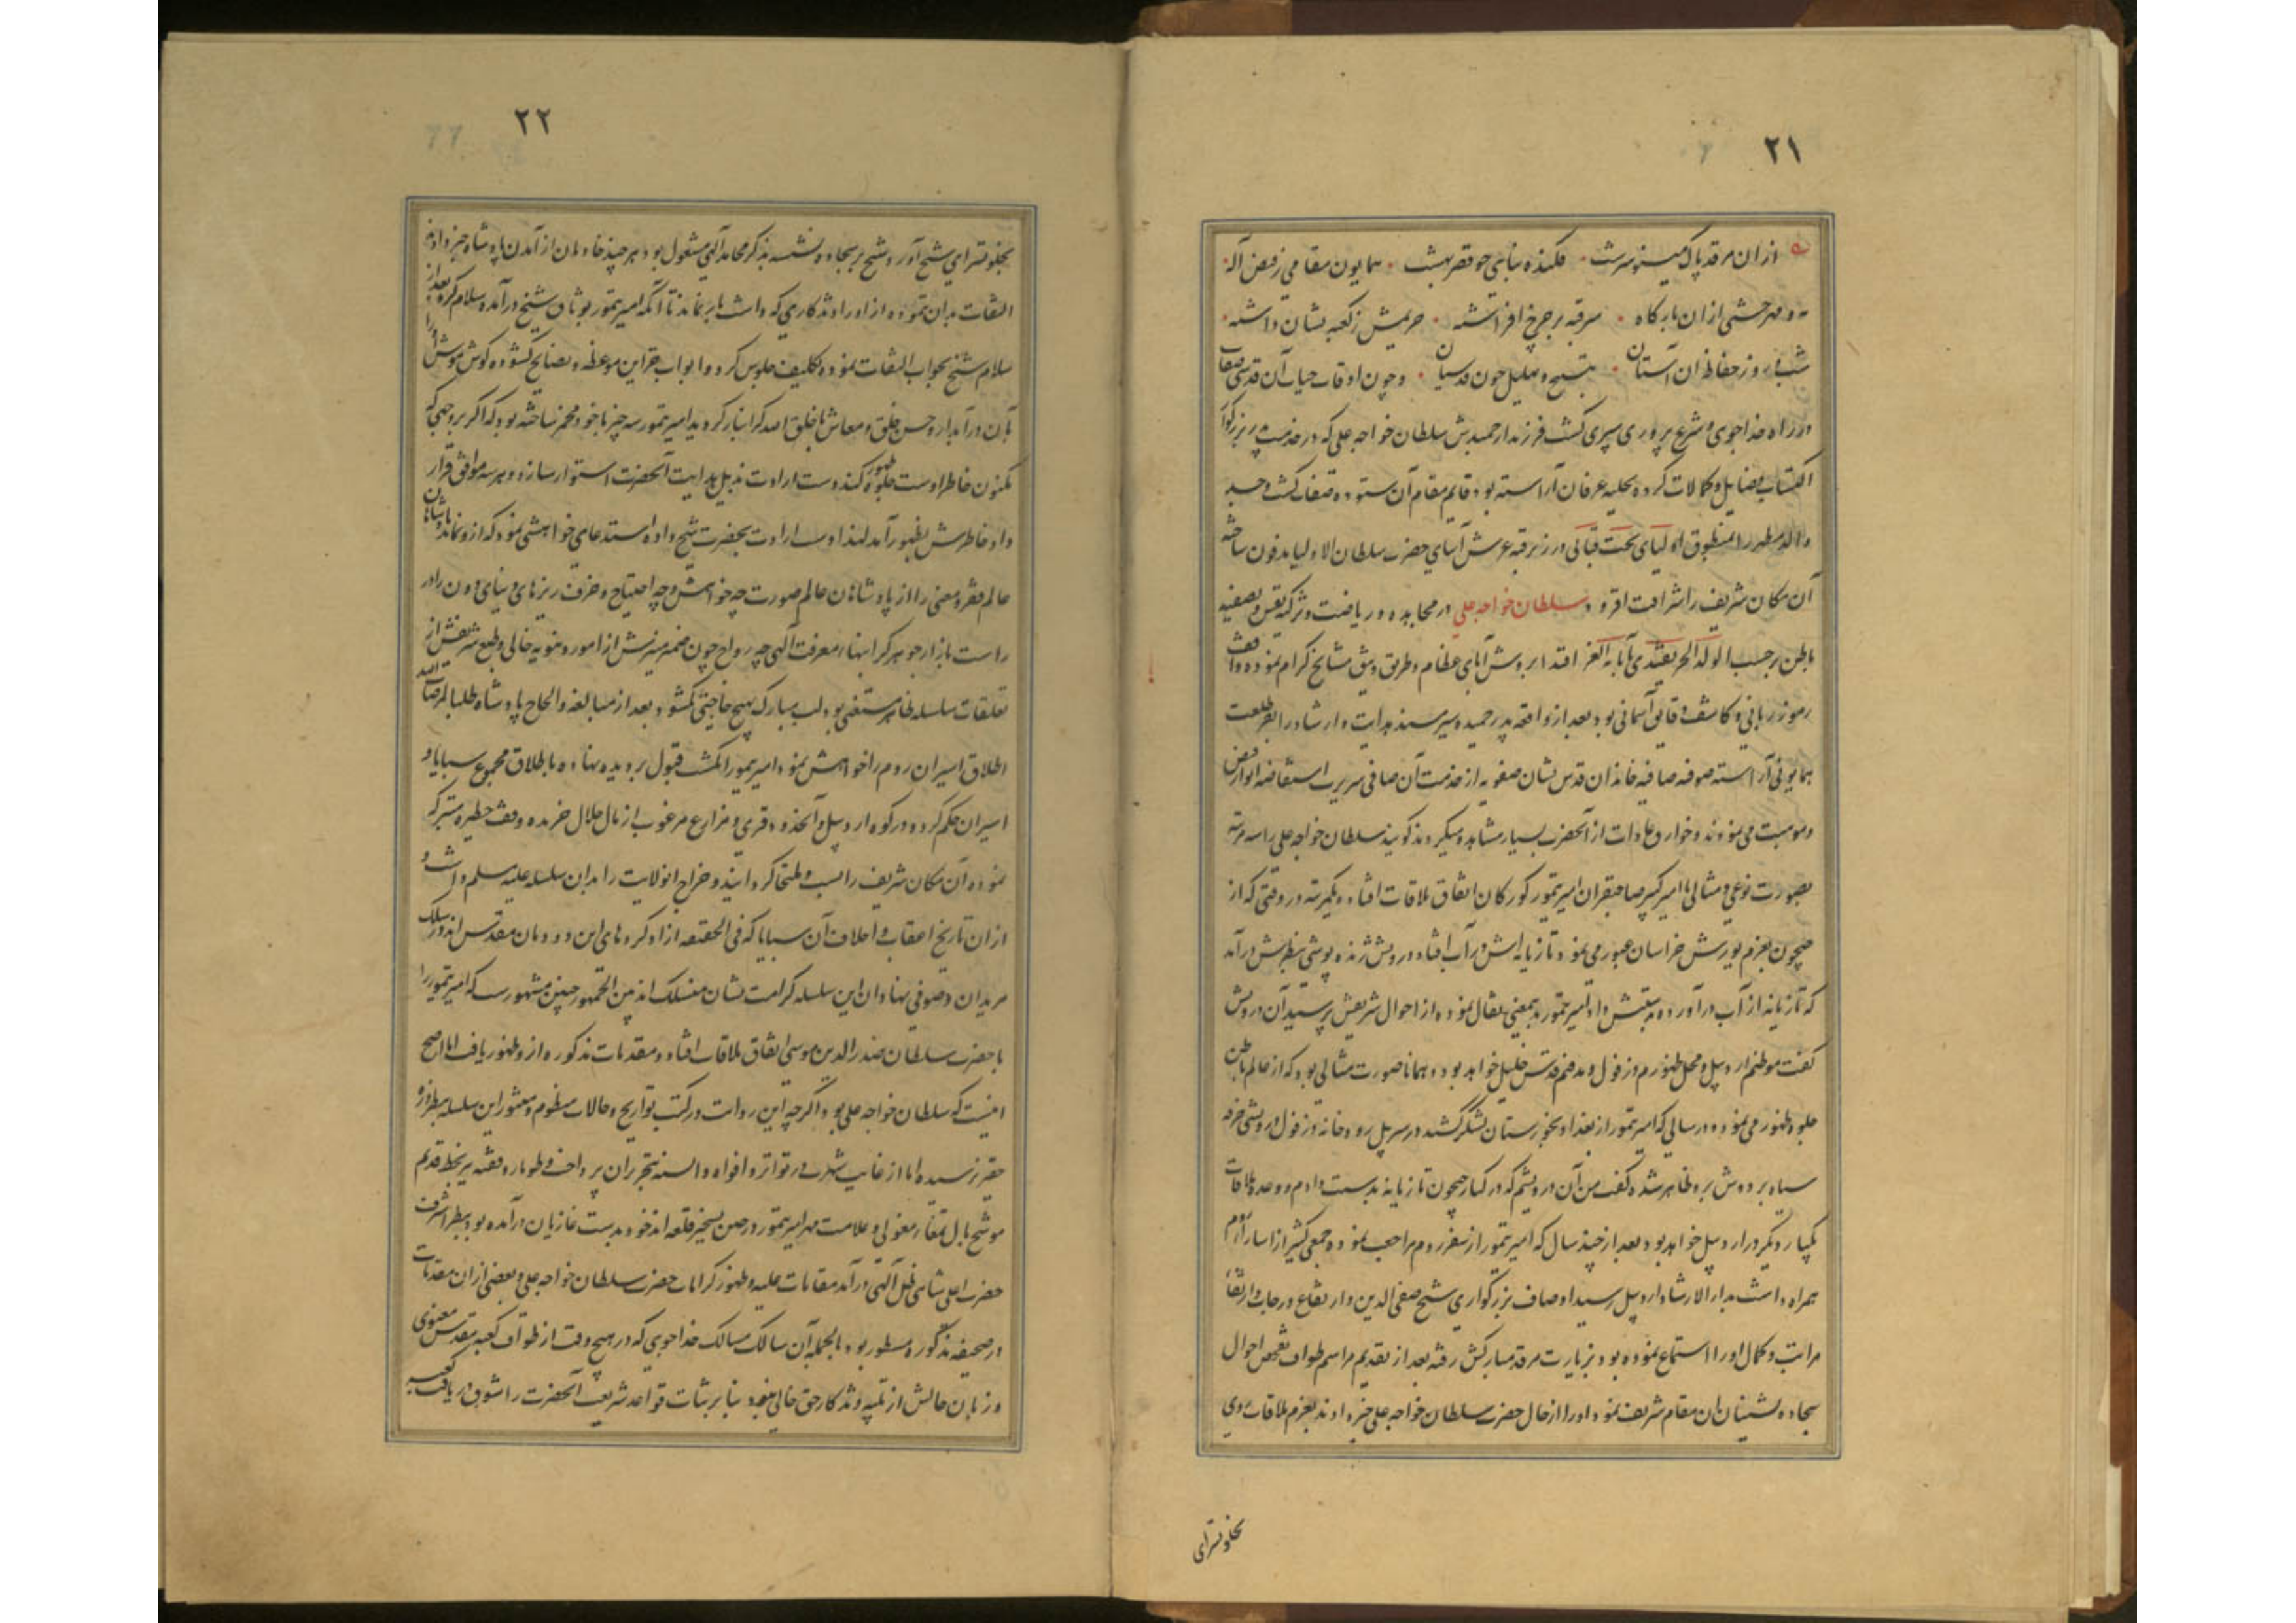 ۲۱
ازان مرقد پاک مینو سرشت فکنده بنایی چو قصر بهشت همایون مقامی ز فیض اله
مه و مهر خشتی ازان بارگاه سر قبه بر چرخ افراشته حریمش ز کعبه نشان داشته
شب و روز حفاظ آن آستان بتسبیح و تهلیل چون قدسیان و چون اوقات حیات آن قدسی صفات
در راه خداجوی و شرع پروری سپری گشت فرزند ارجمندش سلطان خواجه علی که در خدمت پدر بزرگوار
اکتساب فضایل و کمالات کرده بحلیه عرفان آراسته بود قایم مقام آن ستوده صفات گشت و جسد
والد مطهر را بمنطوق اولیای تحت قبابی در زیر قبه عرش آسای حضرت سلطان الاولیا مدفون ساخته
آن مکان شریف را شرافت افزود و سلطان خواجه علی در مجاهده و ریاضت و تزکیه نفس و تصفیه
باطن برحسب الولد الحر یقتدی بآبائه الغر اقتدا بروش آبای عظام و طریق وثیق مشایخ کرام نموده واقف
رموز ربانی و کاشف دقایق آسمانی بود بعد از واقعه پدر حمیده سیر مسند هدایت و ارشاد را بفر طلعت
همایونی آراسته صوفیه صافیه خاندان قدس نشان صفویه از خدمت آن صافی سریرت استفاضه انوار فیض
و موهبت می نمودند و خوارق عادات از آنحضرت بسیار مشاهده میکردند گویند سلطان خواجه علی را سه مرتبه
بصورت نوعی و مثالی با امیر کبیر صاحبقران امیر تیمور کورکان اتفاق ملاقات افتاد یکمرتبه در وقتی که از
جیحون بعزم یورش خراسان عبور می نمود تازیانه اش در آب افتاده درویش ژنده پوشی بنظرش درآمد
که تازیانه از آب درآورده بدستش داد امیر تیمور بدین معنی تفأل نموده از احوال شریفش پرسید آن درویش
گفت موطنم اردبیل و محل ظهورم دزفول و مدفنم قدس خلیل خواهد بود و همانا صورت مثالی بود که از عالم باطن
جلوه ظهور می نمود و در سالی که امیر تیمور از بغداد بخوزستان لشکر کشید در سر پل رودخانه دزفول درویشی خرقه
سیاه بر دوش برو ظاهر شده گفت من آن درویشم که در کنار جیحون تازیانه بدست دادم و وعده ملاقات
یکبار دیگر در اردبیل خواهد بود بعد از چند سال که امیر تیمور از سفر روم مراجعت نموده جمعی کثیر از اسارای روم
همراه داشت بدارالارشاد اردبیل رسید اوصاف بزرگواری شیخ صفی الدین و ارتفاع درجات و ارتقاء
مراتب و کمال او را استماع نموده بود بزیارت مرقد مبارکش رفته بعد از تقدیم مراسم طواف تفحص احوال
سجاده نشینان ان مقام شریف نمود او را از حال حضرت سلطان خواجه علی خبر دادند بعزم ملاقات روی
بخلوتسرای
۲۲
بخلوتسرای شیخ آورد شیخ بر سجاده نشسته بذکر محامد آلهی مشغول بود هر چند خادمان از آمدن پادشاه خبر دادند
التفات بدان ننموده از اوراد و اذکاری که داشت باز نماند تا آنکه امیر تیمور بوثاق شیخ درآمده سلام کرد بعد از
سلام شیخ بجواب التفات نموده تکلیف جلوس کرد و ابواب خزاین موعظه و نصایح گشوده گوش هوش او را
بآن درآبدار و حسن خلق و معاش با خلق الله گرانبار گردید امیر تیمور سه چیز با خود مخمر ساخته بود که اگر بر وجهی که
مکنون خاطر اوست جلوه ظهور کند دست ارادت بذیل هدایت آنحضرت استوار سازد و هر سه موافق قرار
داد خاطرش بظهور آمد لهذا دست ارادت بحضرت شیخ داده استدعای خواهشی نمود که ازو نماید پادشاهان
عالم فقر و معنی را از پادشاهان عالم صورت چه خواهش و چه احتیاج و خزف ریزهای دنیای دون را در
راست بازار جوهر گرانبها معرفت آلهی چه رواج چون ضمیر منیرش از امور دنیویه خالی و طبع شریفش از
تعلقات سلسله ظاهر مستغنی بود لب مبارک بهیچ حاجتی نگشود بعد از مبالغه و الحاح پادشاه طلبا لمرضات الله
اطلاق اسیران روم را خواهش نمود امیر تیمور انگشت قبول بر دیده نهاده باطلاق مجموع سبایا و
اسیران حکم کرد و در کوه اردبیل و آنحدود قری و مزارع مرغوب از مال حلال خریده وقف حظیره متبرکه
نموده آن مکان شریف را بست و ملتجا گردانید و خراج انولایت را بدان سلسله علیه مسلم داشت و
از ان تاریخ اعقاب و اخلاف آن سبایا که فی الحقیقه آزاد کردهای این دودمان مقدس اند در سلک
مریدان و صوفی نهادان این سلسله کرامت نشان منسلک اند بین الجمهور چنین مشهور است که امیر تیمور را
با حضرت سلطان صدرالدین موسی اتفاق ملاقات افتاد و مقدمات مذکوره ازو ظهور یافت اما اصح
اینست که سلطان خواجه علی بود اگرچه این روایت در کتب تواریخ و حالات منظوم و منثور این سلسله بنظر ذره
حقیر نرسیده اما از غایت شهرت و تواتر و افواه و السنه بتحریر ان پرداخت و طومار وقفیه بخط قدیم
موشح بآل تمغاء مغولی و علامت مهر امیر تیمور در حین تسخیر قلعه اندخود بدست غازیان درآمده بود بنظر اشرف
حضرت اعلی شاهی ظل آلهی درآمد مقامات علیه و ظهور کرامات حضرت سلطان خواجه علی و بعضی از ان مقدمات
در صحیفه مذکوره مسطور بود بالجمله آن سالک مسالک خداجویی که در هیچ وقت از طواف کعبه مقدس معنوی
و زبان حالش از تلبیه و تذکار حق خالی نبود بنا بر ثبات قواعد شریعت آنحضرت را شوق دریافت کعبه